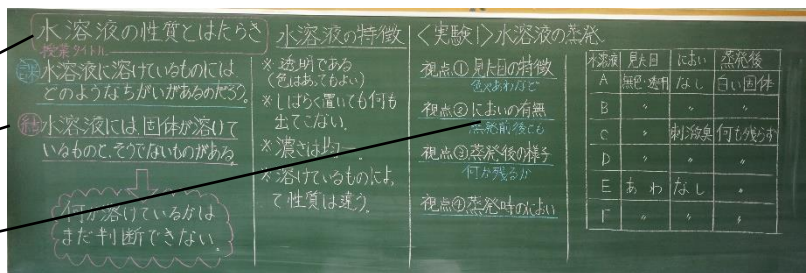 水溶液の性質とはたらき
授業タイトル
課 水溶液に溶けているものには
どのようなちがいがあるのだろう。
結 水溶液には、固体が溶けて
いるものと、そうでないものがある。
何が溶けているかは
まだ判断できない。
水溶液の特徴
※透明である
(色はあってもよい)
※しばらく置いても何も
出てこない。
※濃さは均一。
※溶けているものによっ
て性質は違う。
〈実験1〉水溶液の蒸発
視点① 見た目の特徴
色やあわなど
視点② においの有無
蒸発前後にも
視点③ 蒸発後の様子
何が残るか
視点④ 蒸発時のにおい
水溶液 見た目 におい 蒸発後
A 無色・透明 なし 白い固体
B 〃 〃 〃
C 〃 刺激臭 何も残らず
D 〃 〃 〃
E あわ なし 〃
F 〃 〃 〃